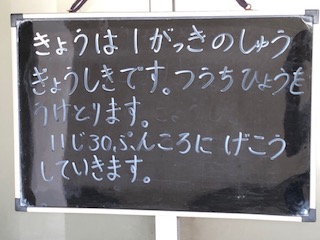 きょうは1がっきのしゅう
ぎょうしきです。つうちひょうを
うけとります。
11じ30.ぷんころに げこう
していきます。